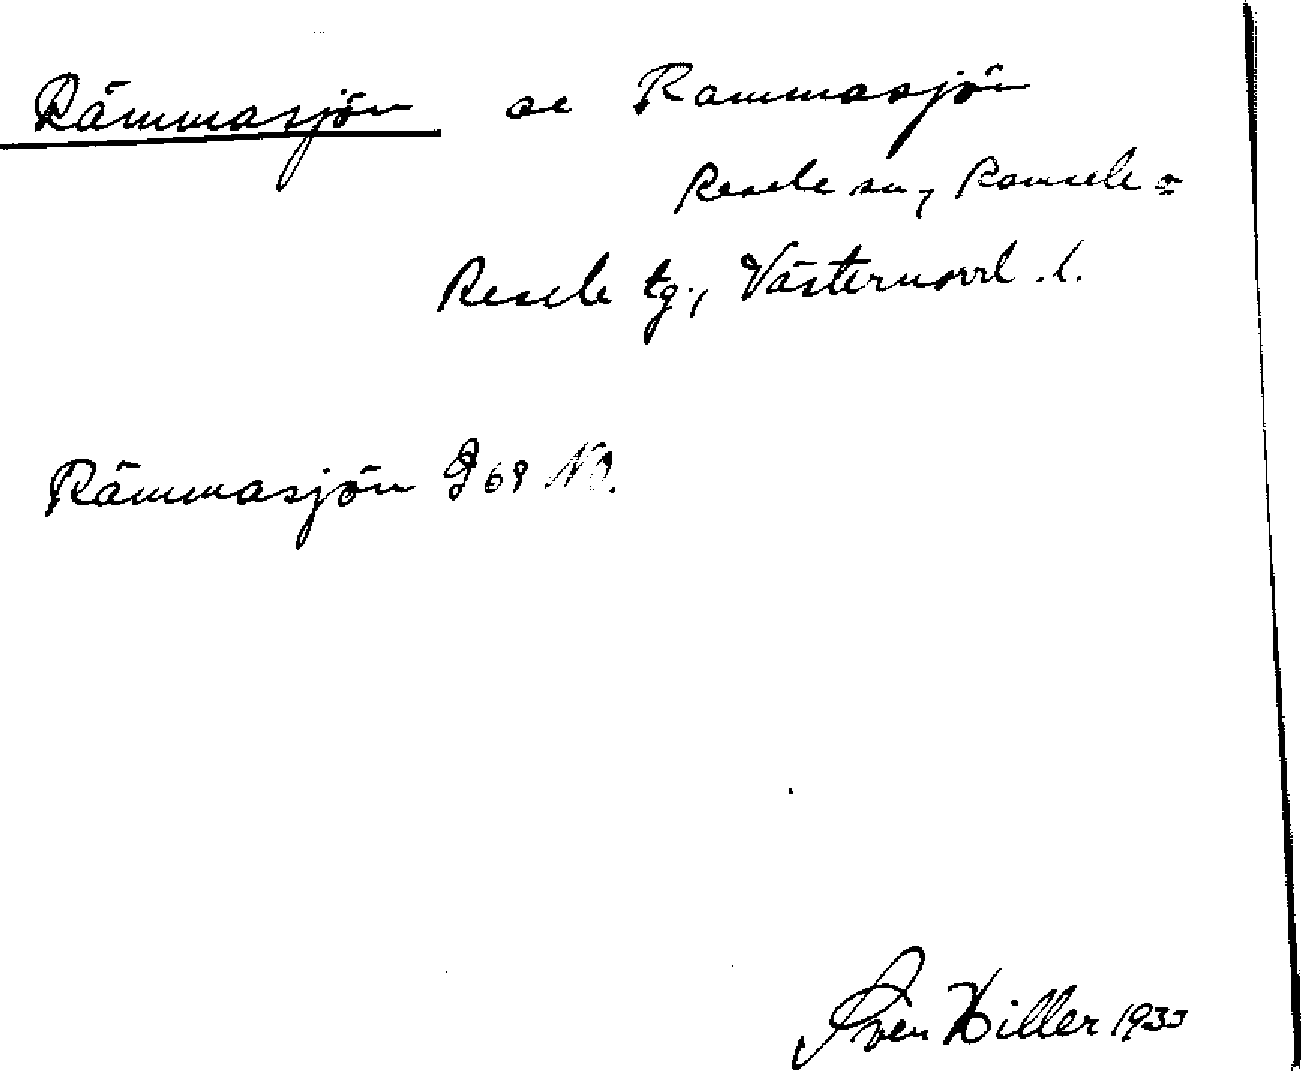 Rämmasjön se Rammasjön
Resele sn, Ramsele-
Resele tg., Västernorrl. l.
Rämmasjön J 69 NO.
Sven Hiller 1933